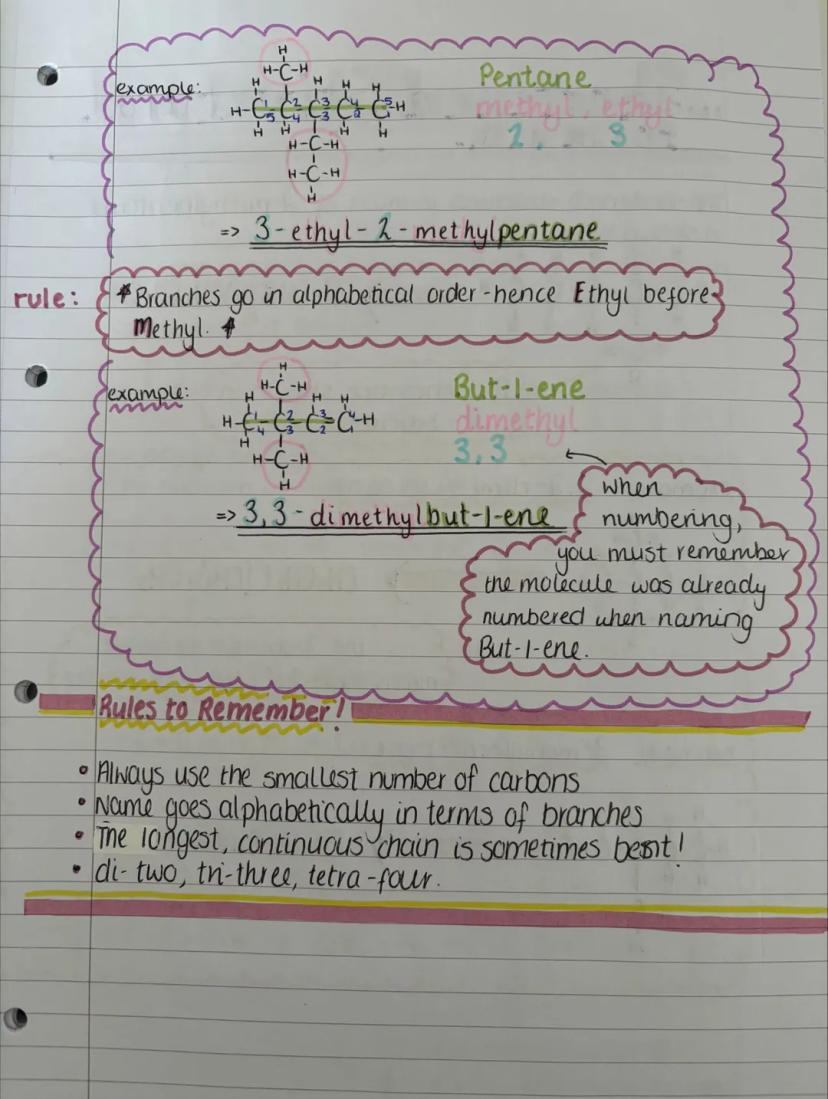 example:
H
H-C-H
H H H H
H-C-C-C-C-C-H
1 2 3 4 5
5 4 3 2
H H H H
H-C-H
H-C-H
H
Pentane
methyl, ethyl
2, 3
=> 3-ethyl-2-methylpentane
rule:
*Branches go in alphabetical order-hence Ethyl before
Methyl. *
example:
H
H-C-H
H H H
H-C-C-C=C-H
1 2 3 4
4 3 2
H
H-C-H
H
But-1-ene
dimethyl
3,3
=> 3,3-dimethylbut-1-ene
When
numbering,
you must remember
the molecule was already
numbered when naming
But-1-ene.
Rules to Remember!
• Always use the smallest number of carbons
• Name goes alphabetically in terms of branches
• The longest, continuous chain is sometimes bent!
• di-two, tri-three, tetra-four.